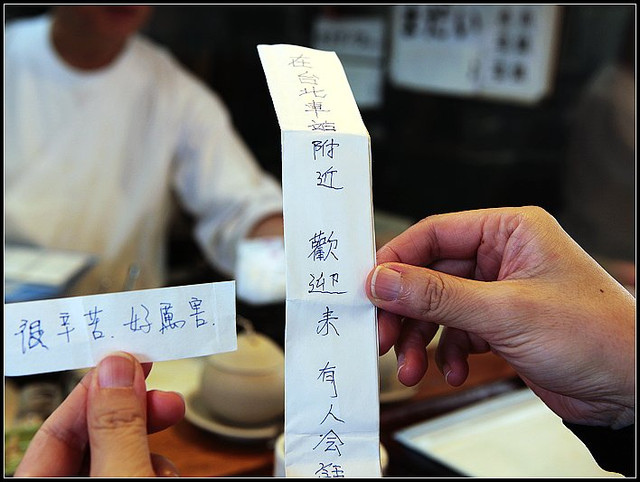 在台北車站附近 歡迎来 有人会
很辛苦.好厲害.